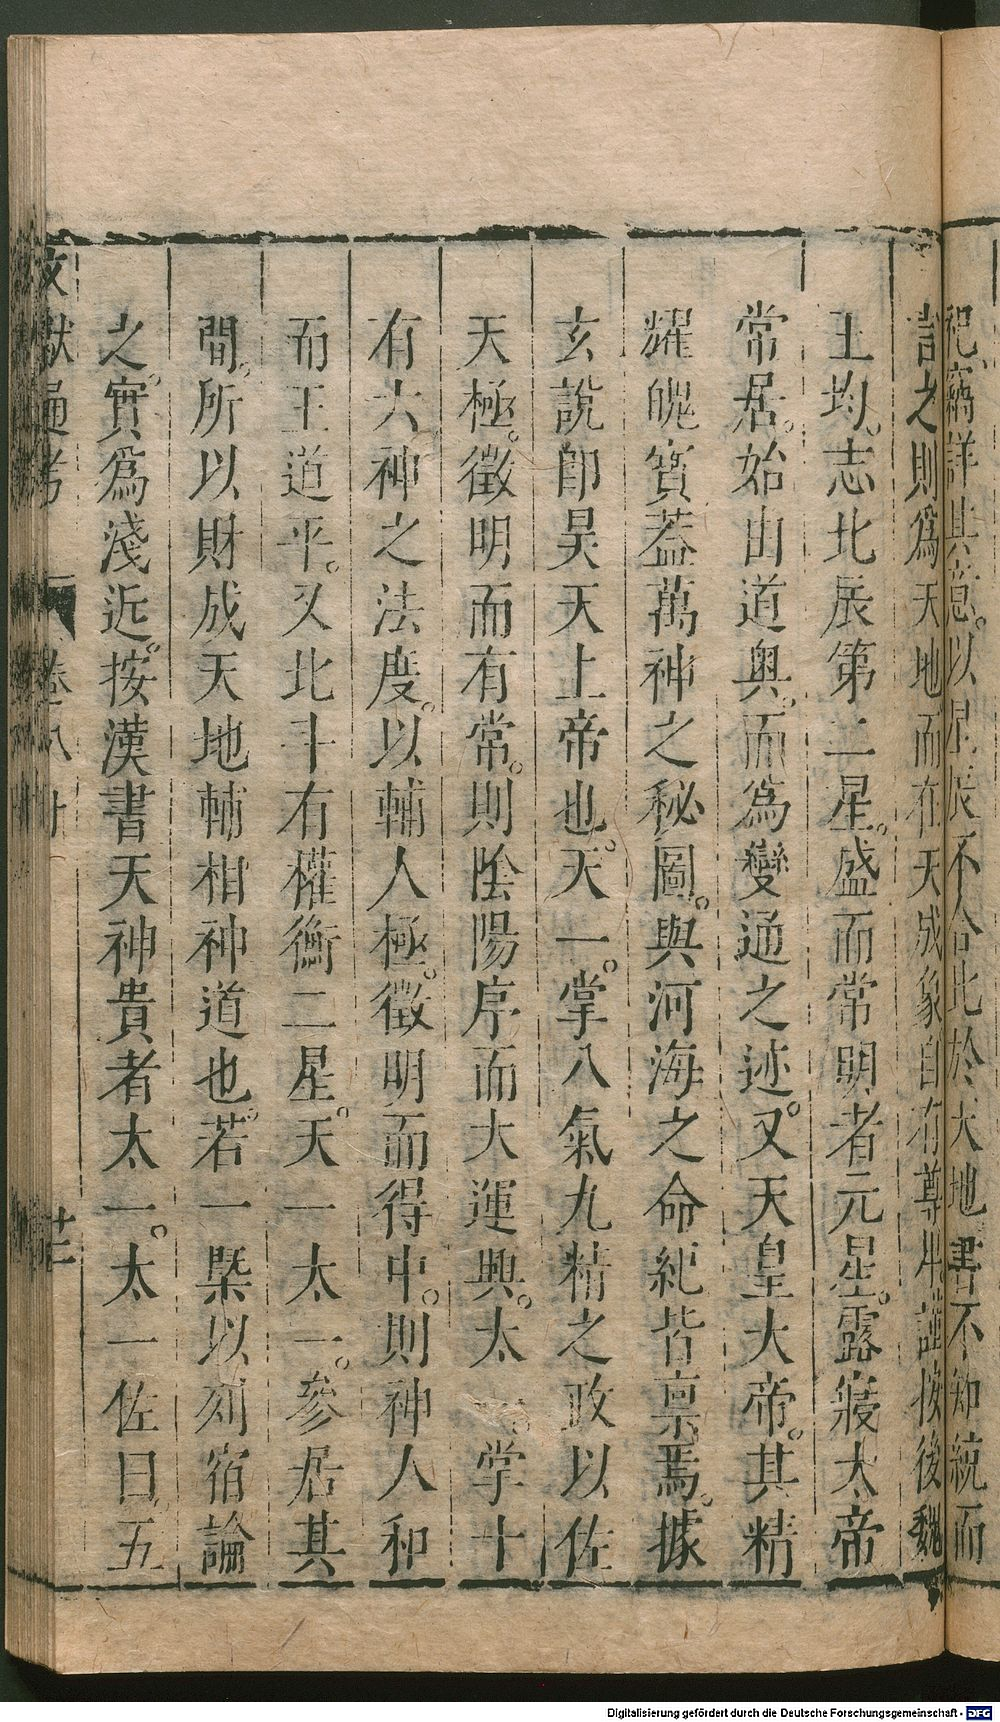 祀竊詳其意以星辰不合比於天地書不知統而
言之則爲天地而在天成象自有尊卑謹按後魏
王均志北辰第二星盛而常明者元星露寢太帝
常居始由道奧而爲變通之迹又天皇大帝其精
耀魄寶葢萬神之秘圖與河海之命紀皆禀焉據
玄說卽昊天上帝也天一掌八氣九精之政以佐
天極徵明而有常則陰陽序而大運興太 掌十
有六神之法度以輔人極徵明而得中則神人和
而王道平又北斗有權衡二星天一太一參居其
間所以財成天地輔相神道也若一槩以列宿論
之實爲淺近按漢書天神貴者太一太一佐曰五
文獻通考 卷八十
Digitalisierung gefördert durch die Deutsche Forschungsgemeinschaft - DFG